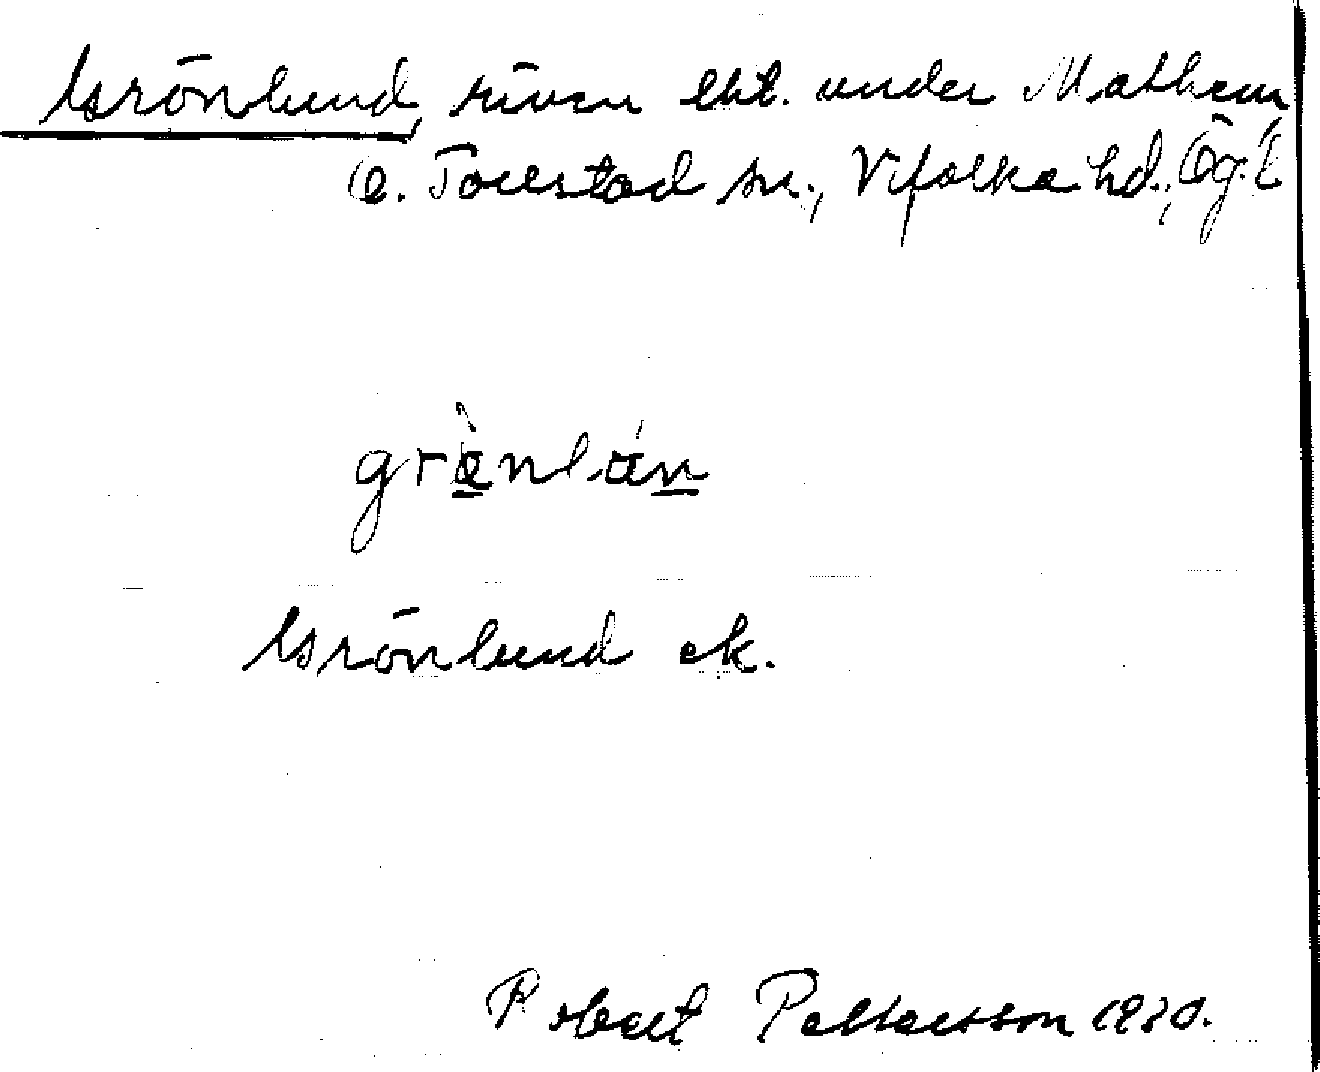 Grönlund, riven lht. under Mathem,
Ö. Tollstad sn., Vifolka hd., Ög. l.
grènlán
Grönlund ek.
Robert Pettersson 1930.